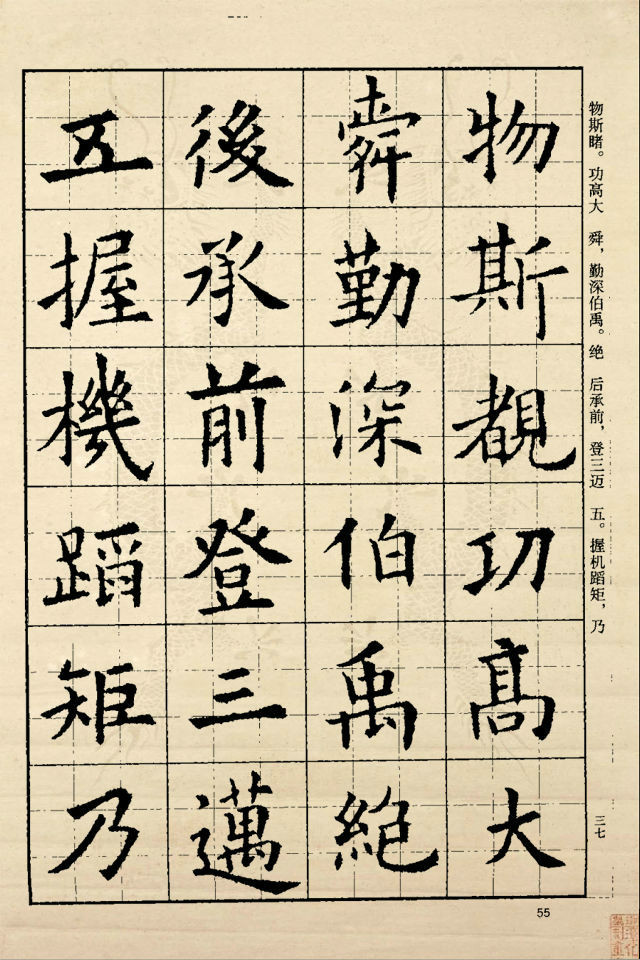 物斯覩功髙大
舜勤深伯禹絶
後承前登三邁
五握機蹈矩乃
物斯睹。功高大　舜，勤深伯禹。绝　后承前，登三迈　五。握机蹈矩，乃
三七
55